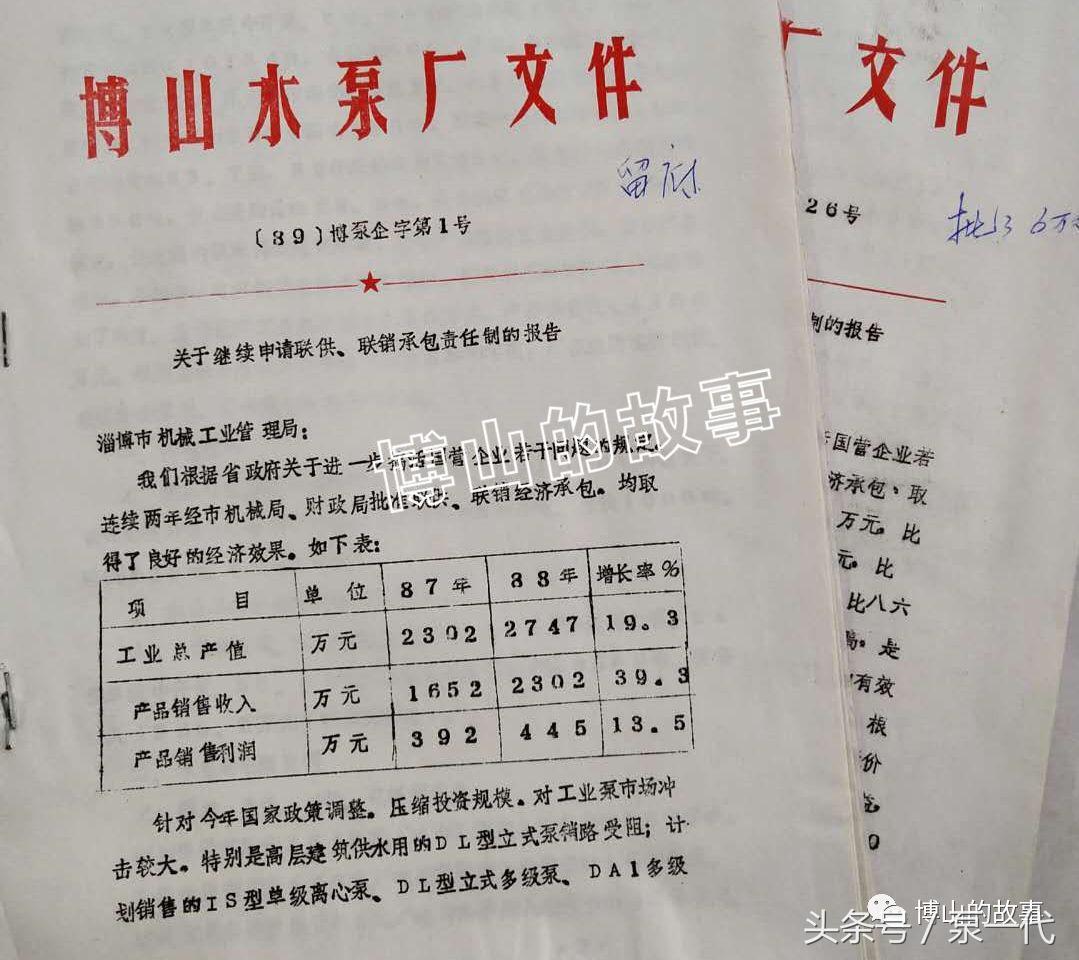 博山水泵厂文件
留底
〔89〕博泵企字第1号
关于继续申请联供、联销承包责任制的报告
淄博市机械工业管理局:
我们根据省政府关于进一步搞活国营企业若干问题的规定,
连续两年经市机械局、财政局批准联供、联销经济承包。均取
得了良好的经济效果。如下表:
项目 单位 87年 88年 增长率%
工业总产值 万元 2302 2747 19.3
产品销售收入 万元 1652 2302 39.3
产品销售利润 万元 392 445 13.5
针对今年国家政策调整。压缩投资规模。对工业泵市场冲
击较大。特别是高层建筑供水用的DL型立式泵销路受阻;计
划销售的IS型单级离心泵、DL型立式多级泵、DA1多级
厂文件
26号
制的报告
国营企业若
济承包,取
万元。比
元。比
比八六
局。是
有效
根
价
0
博山的故事
博山的故事
头条号/泵一代